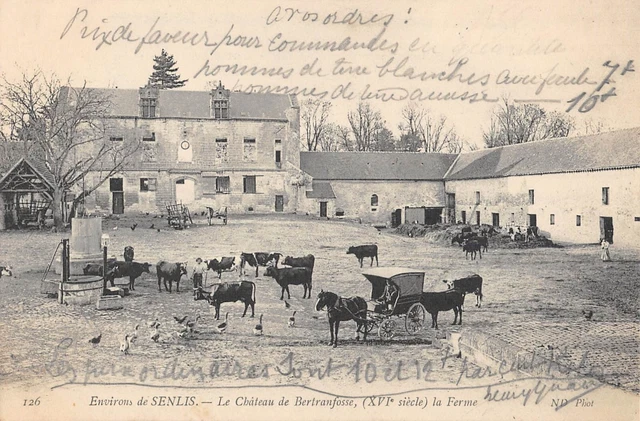 A vos ordres !
Prix de faveur pour commandes en
pommes de terre blanches avec feule 7f
pommes de terre 10f
Les prix ordinaires sont 10 et 12f par
126 Environs de SENLIS. — Le Château de Bertranfosse, (XVIe siècle) la Ferme ND Phot